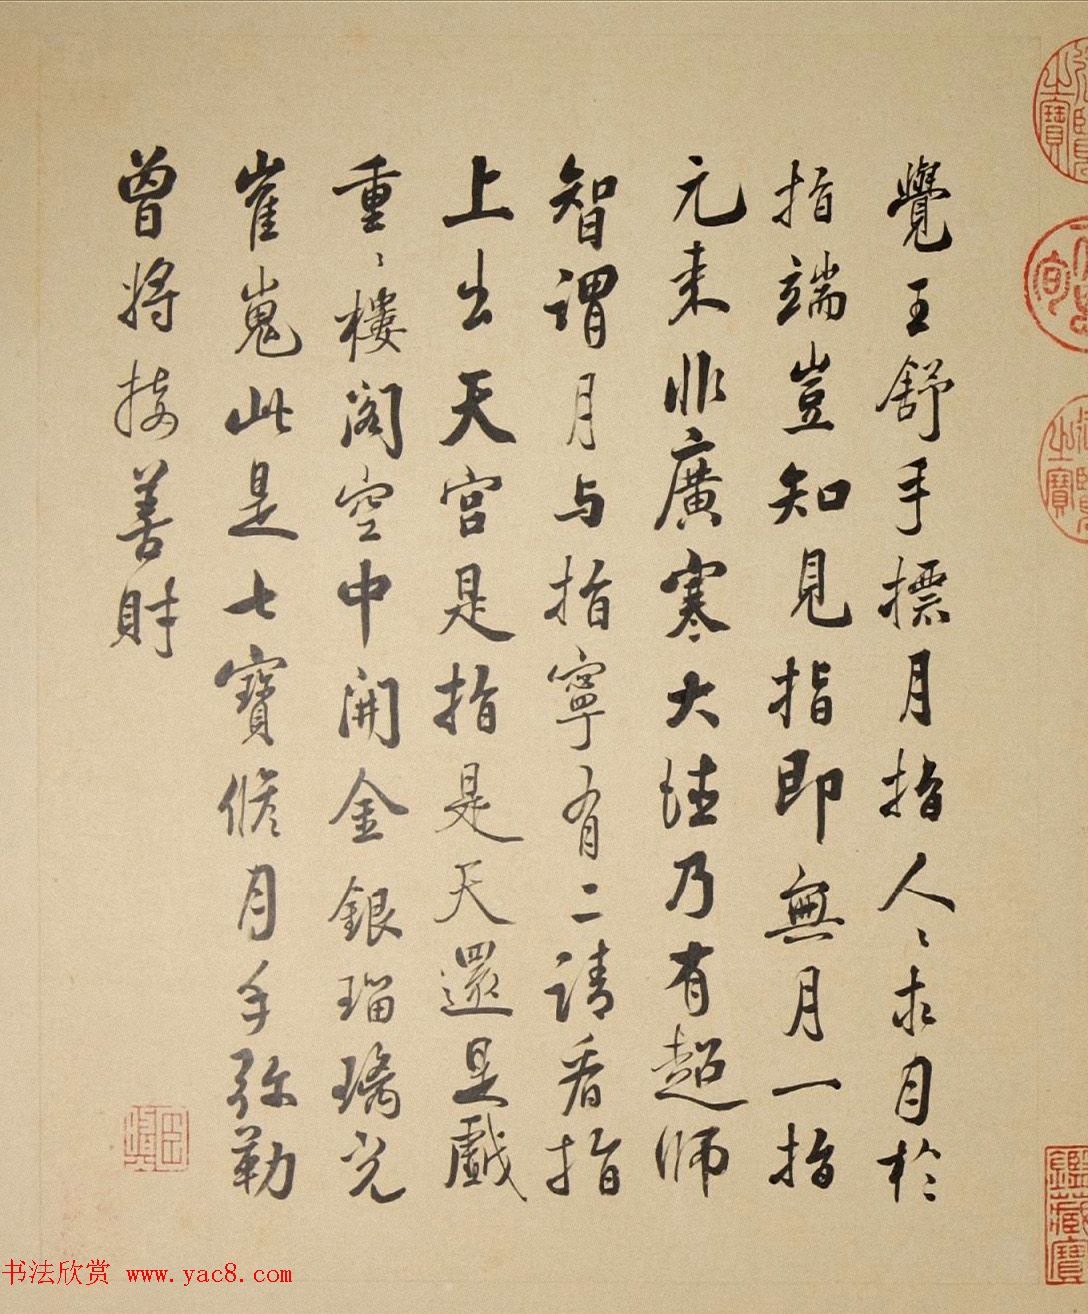 覺王舒手標月指人〻求月於
指端豈知見指即無月一指
元来非廣寒大乃有超師
智謂月与指寧有二請看指
上出天宮是指是天還是戲
重〻樓阁空中開金銀瑠璃光
崔嵬此是七寶脩月手弥勒
曾将接善財
书法欣赏 www.yac8.com